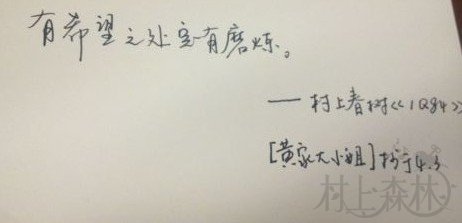 有希望之处定有磨炼。
——村上春树《1Q84》
[黄家大小姐]抄于4.3
村上森林